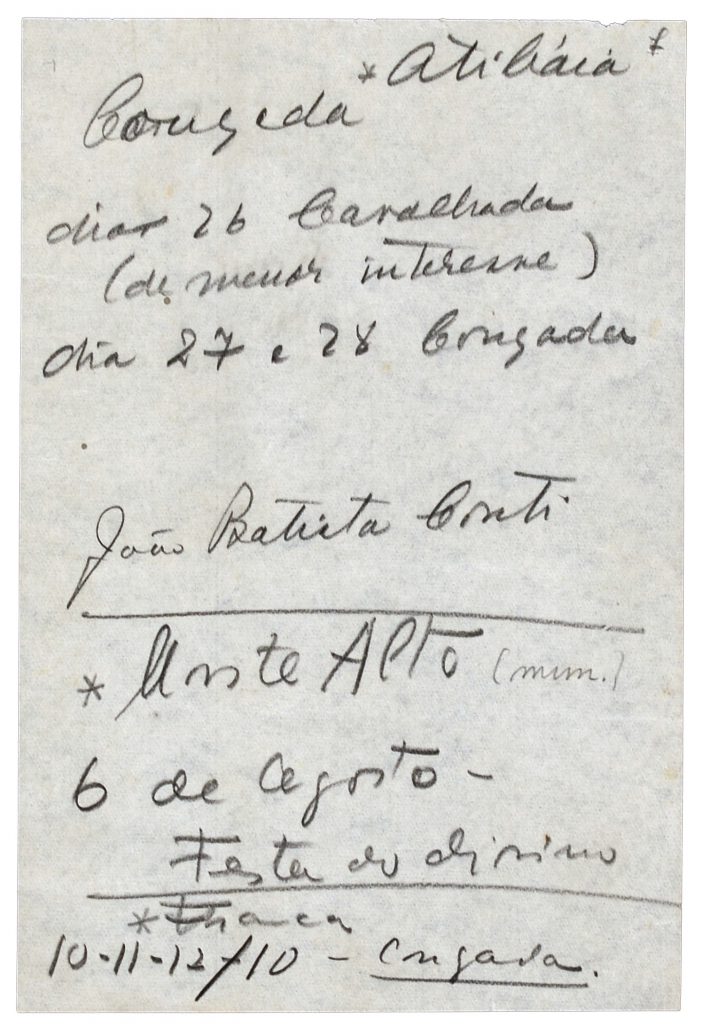 * Atibáia *
Congada
dias 26 Cavalhada
(de menor interesse)
dia 27 e 28 Congada
João Batista Conti
* Monte Alto (mun.)
6 de Agosto -
Festa do divino
* Franca
10-11-12/10 - Congada.